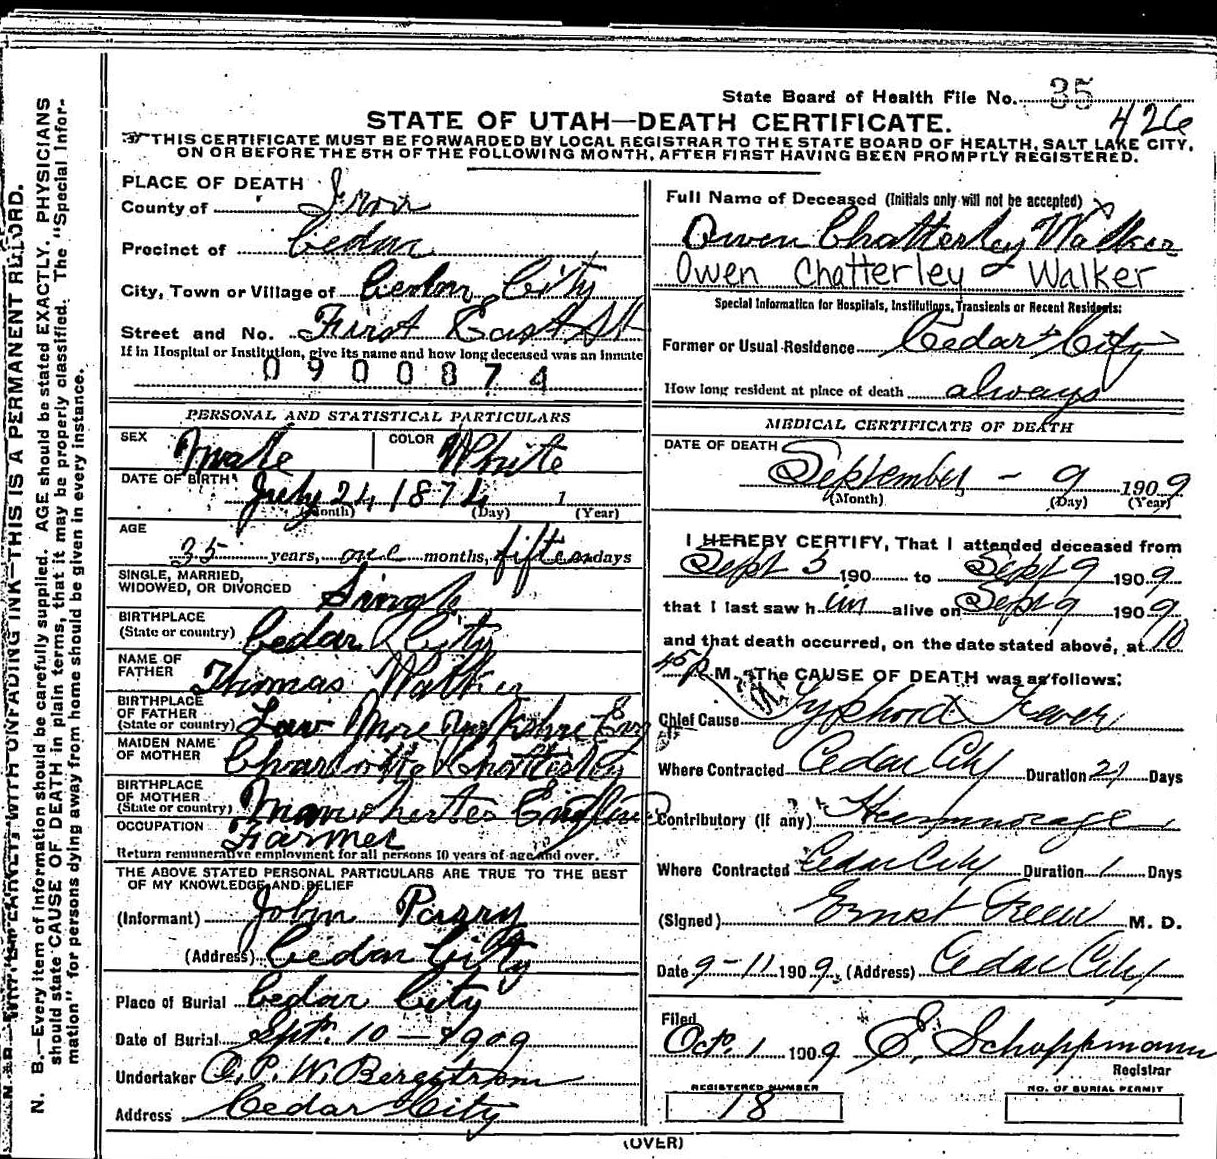 State Board of Health File No. 35
426
STATE OF UTAH—DEATH CERTIFICATE.
THIS CERTIFICATE MUST BE FORWARDED BY LOCAL REGISTRAR TO THE STATE BOARD OF HEALTH, SALT LAKE CITY,
ON OR BEFORE THE 5TH OF THE FOLLOWING MONTH, AFTER FIRST HAVING BEEN PROMPTLY REGISTERED.
N. B.—WRITE PLAINLY WITH UNFADING INK—THIS IS A PERMANENT RECORD.
N. B.—Every item of information should be carefully supplied. AGE should be stated EXACTLY. PHYSICIANS
should state CAUSE OF DEATH in plain terms, that it may be properly classified. The "Special Infor-
mation" for persons dying away from home should be given in every instance.
PLACE OF DEATH
County of Iron
Precinct of Cedar
City, Town or Village of Cedar City
Street and No. First East St
If in Hospital or Institution, give its name and how long deceased was an inmate
0900874
PERSONAL AND STATISTICAL PARTICULARS
SEX Male COLOR White
DATE OF BIRTH July 24 1874 1
(Month) (Day) (Year)
AGE
35 years, one months, fifteen days
SINGLE, MARRIED,
WIDOWED, OR DIVORCED Single
BIRTHPLACE
(State or country) Cedar City
NAME OF
FATHER Thomas Walker
BIRTHPLACE
OF FATHER
(State or country) Eng
MAIDEN NAME
OF MOTHER Charlotte Chatterley
BIRTHPLACE
OF MOTHER
(State or country) Manchester England
OCCUPATION Farmer
Return remunerative employment for all persons 10 years of age and over.
THE ABOVE STATED PERSONAL PARTICULARS ARE TRUE TO THE BEST
OF MY KNOWLEDGE AND BELIEF
(Informant) John Parry
(Address) Cedar City
Place of Burial Cedar City
Date of Burial Sept. 10 — 1909
Undertaker O. P. W. Bergstrom
Address Cedar City
Full Name of Deceased (Initials only will not be accepted)
Owen Chatterley Walker
Owen Chatterley Walker
Special Information for Hospitals, Institutions, Transients or Recent Residents:
Former or Usual Residence Cedar City
How long resident at place of death always
MEDICAL CERTIFICATE OF DEATH
DATE OF DEATH
September - 9 1909
(Month) (Day) (Year)
I HEREBY CERTIFY, That I attended deceased from
Sept 5 190 to Sept 9 1909
that I last saw him alive on Sept 9 1909
and that death occurred, on the date stated above, at 10
45 P M. The CAUSE OF DEATH was as follows:
Chief Cause Typhoid Fever
Where Contracted Cedar City Duration 21 Days
Contributory (if any) Hemmorage
Where Contracted Cedar City Duration 1 Days
(Signed) Ernest Green M. D.
Date 9-11 1909, (Address) Cedar City
Filed
Oct. 1 1909 E. Schoppmann
Registrar
REGISTERED NUMBER
18
NO. OF BURIAL PERMIT
(OVER)